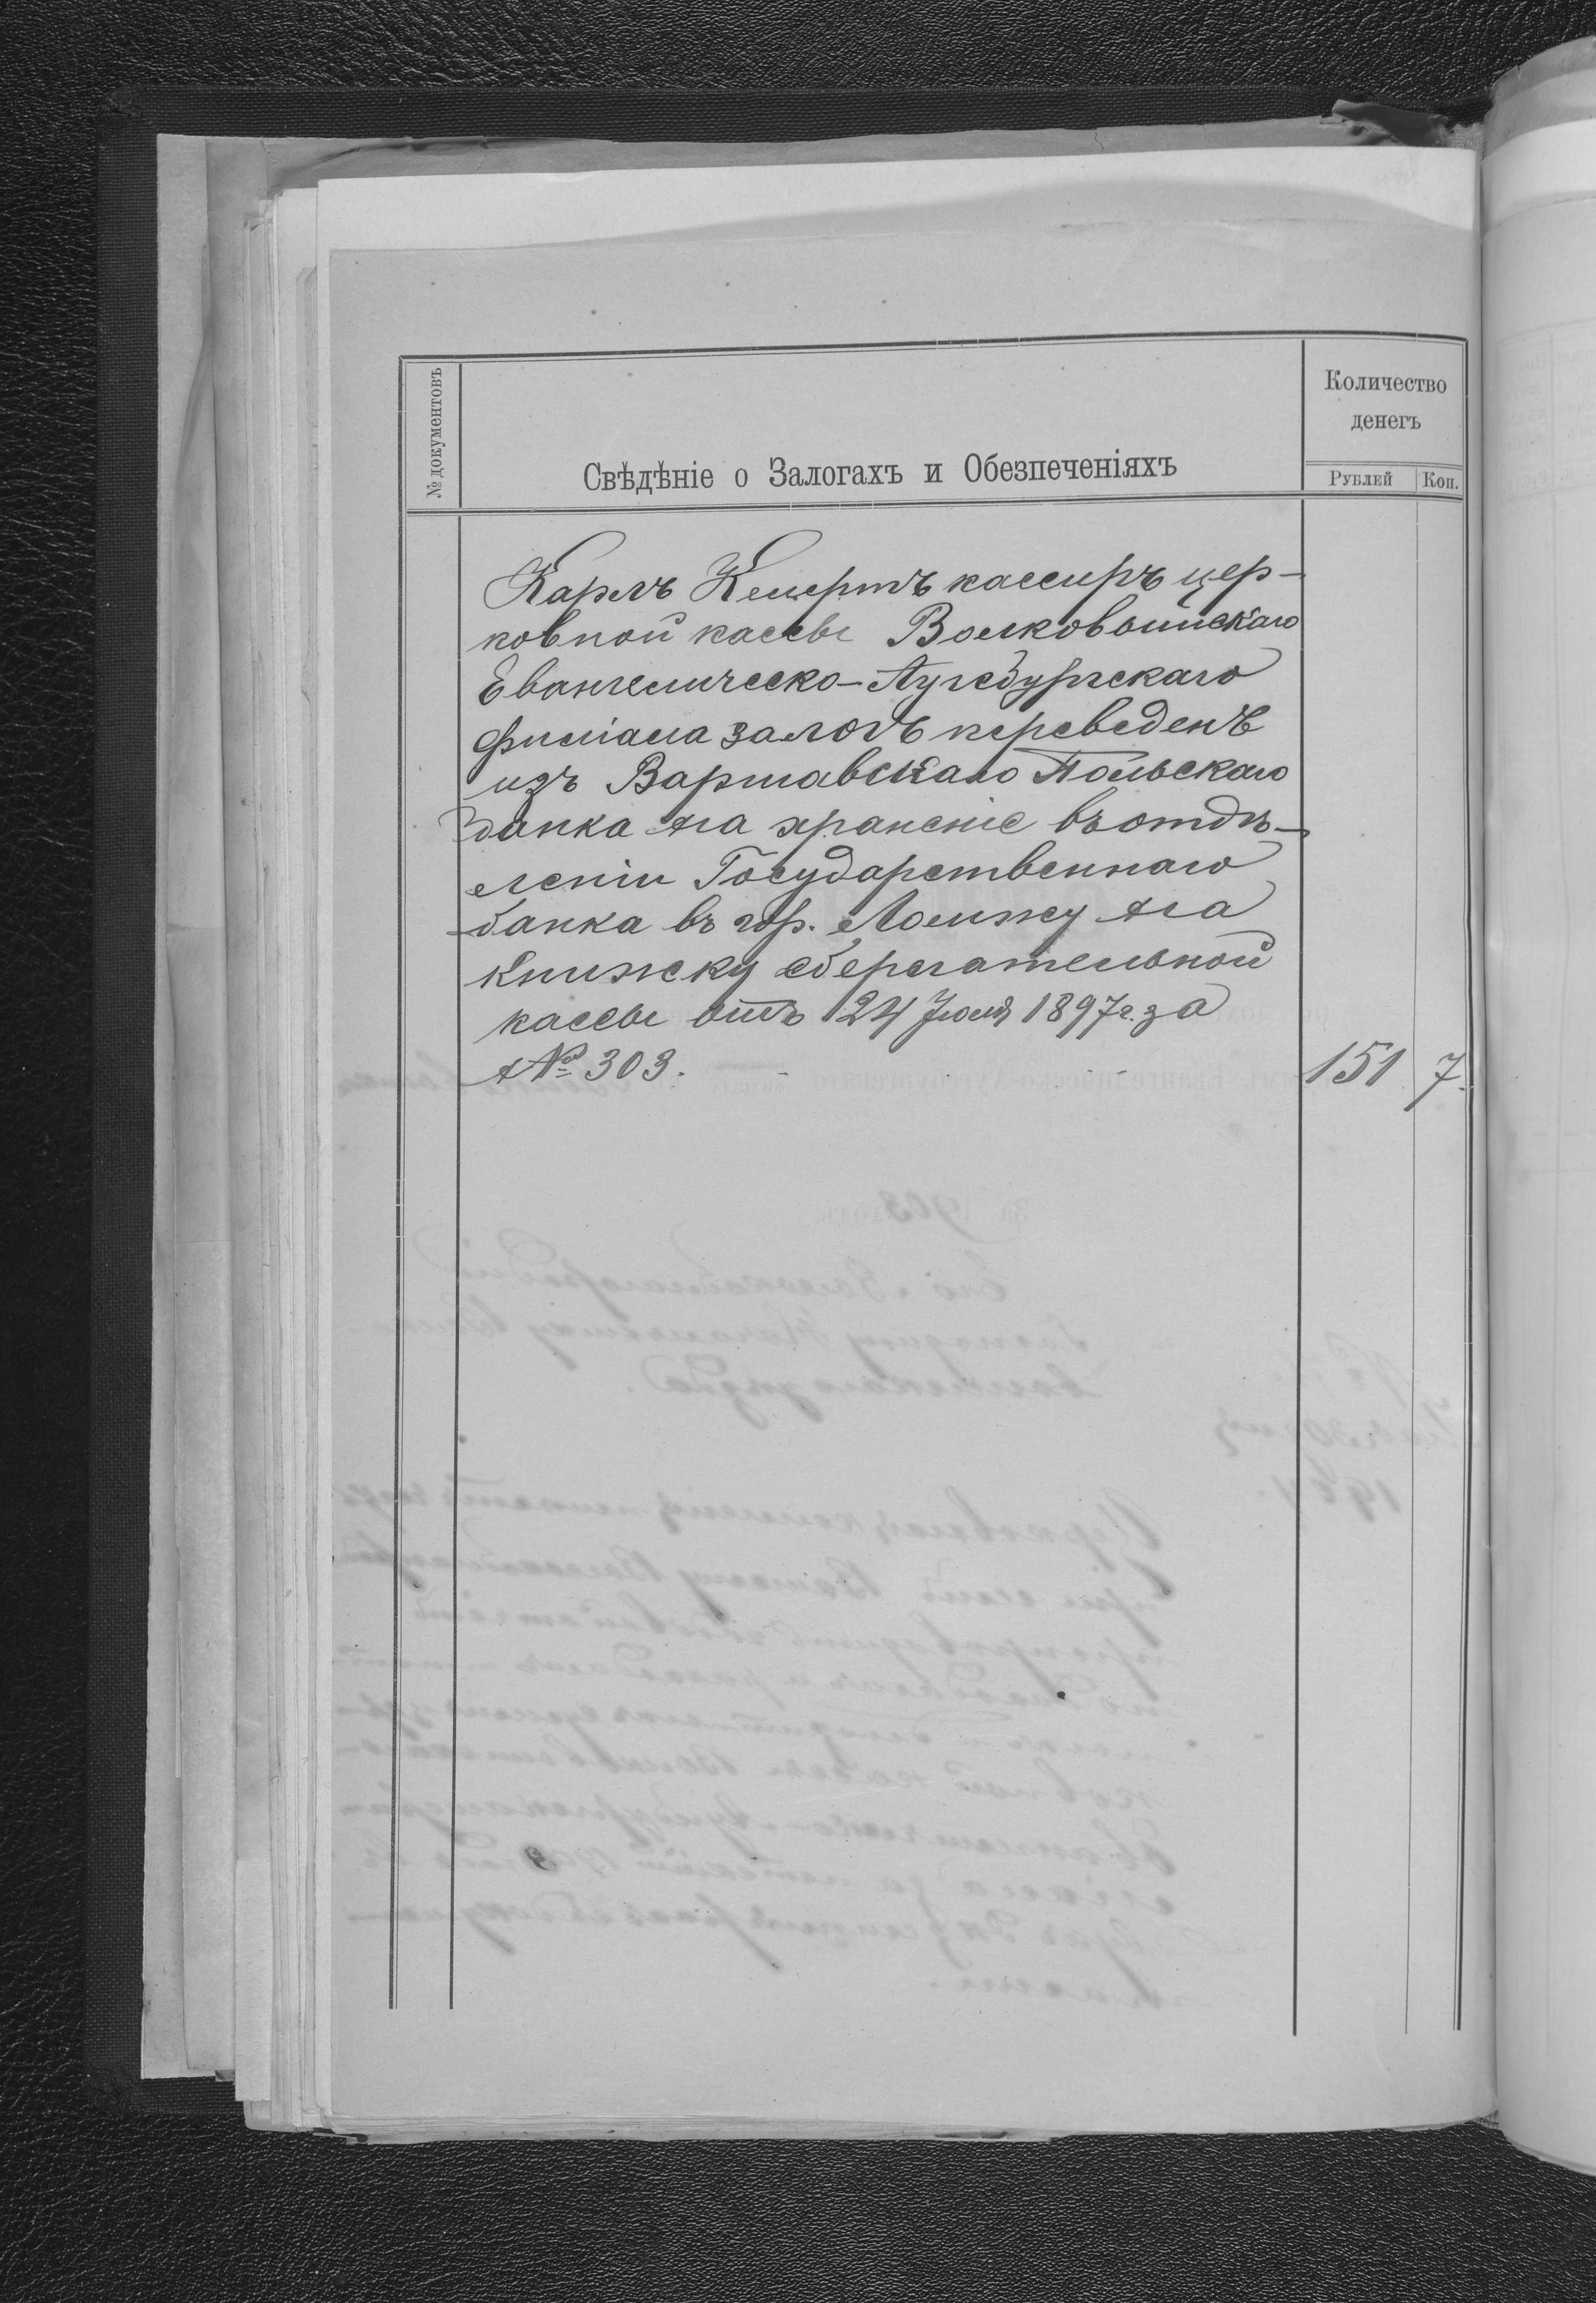 № документовъ
Свѣдѣніе о Залогахъ и Обезпеченіяхъ
Количество
денегъ
Рублей Коп.
Карлъ Кемертъ кассиръ цер-
ковной кассы Волковышскаго
Евангелическо-Аугсбургскаго
филіала залогъ переведенъ
изъ Варшавскаго Польскаго
банка на храненіе въ отдѣ-
леніи Государственнаго
банка въ гор. Ломжу на
книжку сберегательной
кассы отъ 24 Іюля 1897 г. за
№ 303. 151 7